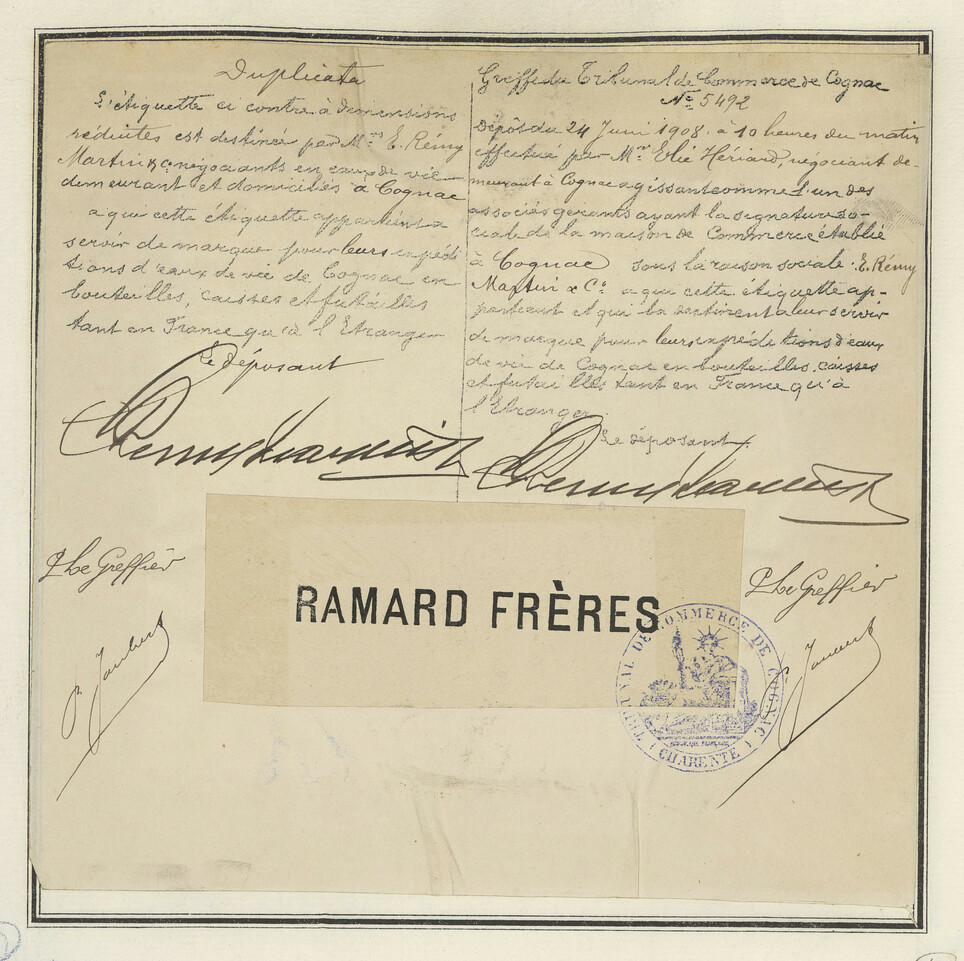 Duplicata
L'étiquette ci contre à dimensions
réduites est destinée par Mrs E. Rémy
Martin & Co négociants en eaux de vie
demeurant et domiciliés à Cognac
a qui cette étiquette appartient a
servir de marque pour leurs expédi
tions d'eaux de vie de Cognac en
bouteilles, caisses et futailles
tant en France qu'à l'Etranger
Le déposant
Greffe du Tribunal de Commerce de Cognac
No 5492
Dépôt du 24 Juin 1908 à 10 heures du matin
effectué par Mr Elie Hériard, négociant de-
meurant à Cognac agissant comme l'un des
associés gérants ayant la signature so-
ciale de la maison de Commerce établie
à Cognac sous la raison sociale E. Rémy
Martin & Co a qui cette étiquette ap-
partient et qui la destinent a leur servir
de marque pour leurs expéditions d'eaux
de vie de Cognac en bouteilles, caisses
et futailles tant en France qu'à
l'Etranger
Le déposant
Remy Martin
Remy Martin
P. Le Greffier
P. Le Greffier
RAMARD FRÈRES
TRIBUNAL DE COMMERCE DE COGNAC
RÉPUBLIQUE FRANÇAISE
(CHARENTE)